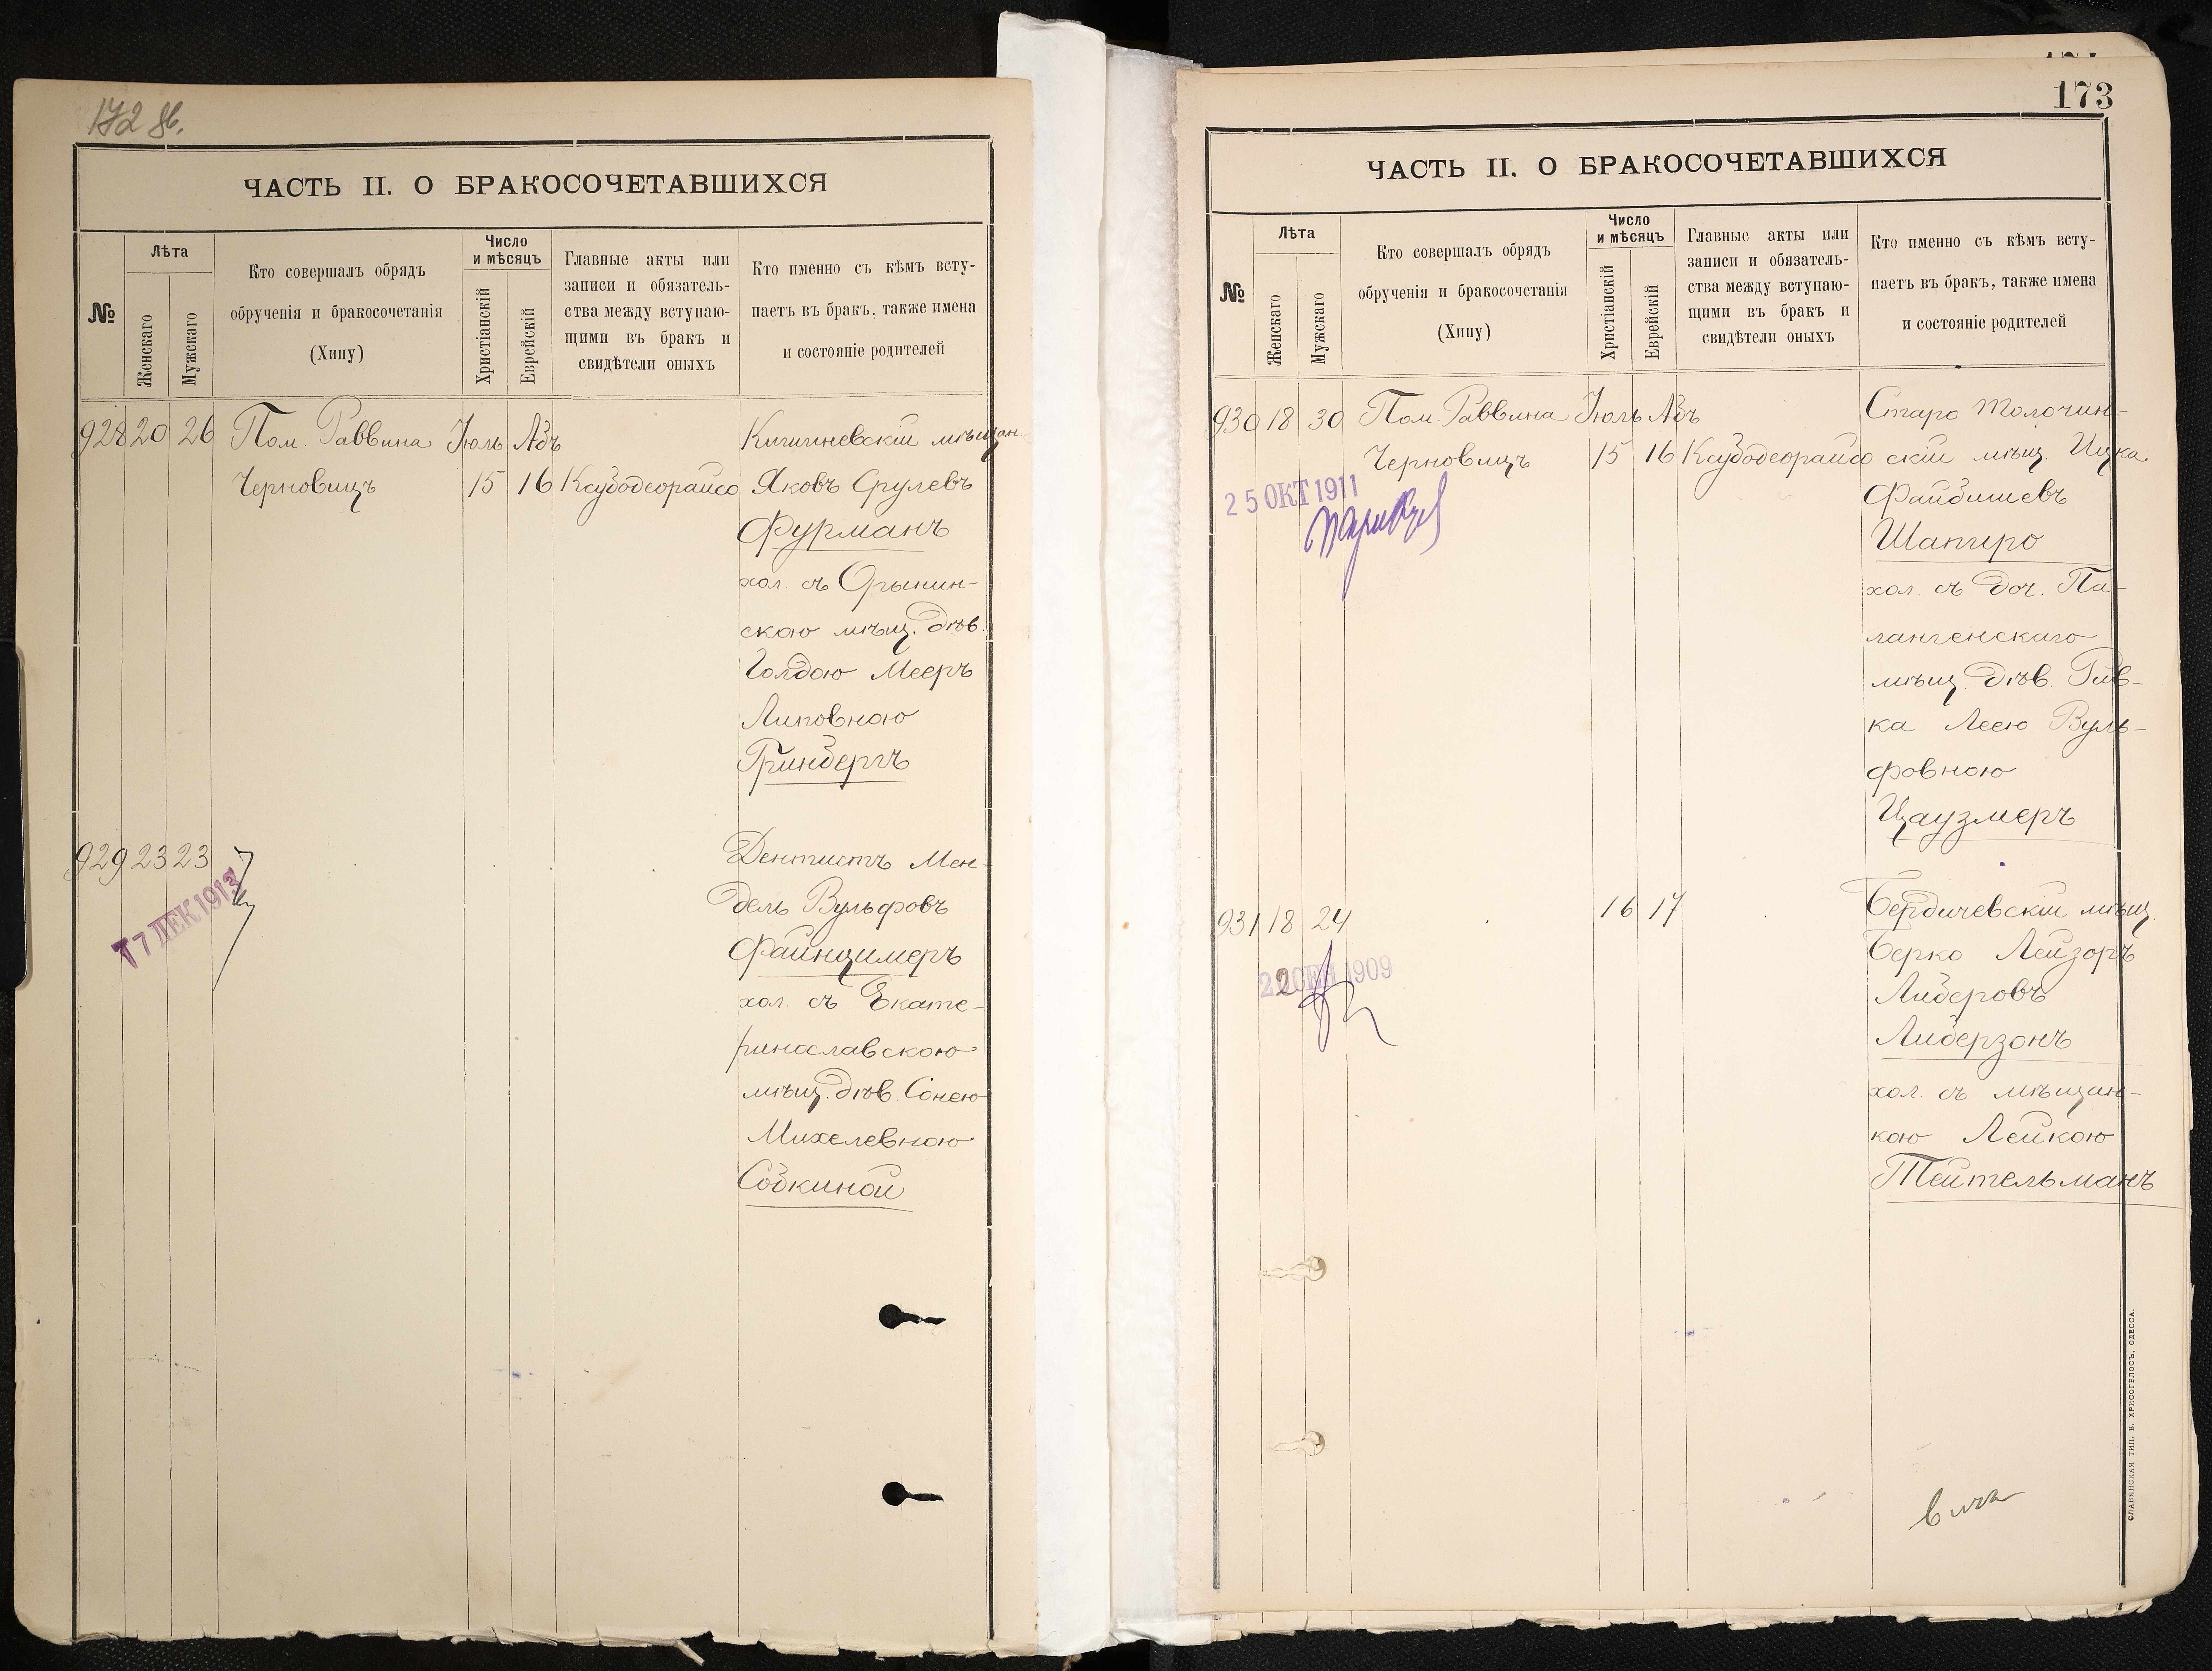 172 об.
ЧАСТЬ II. О БРАКОСОЧЕТАВШИХСЯ
№
Лѣта
Женскаго
Мужскаго
Кто совершалъ обрядъ
обрученія и бракосочетанія
(Хипу)
Число
и мѣсяцъ
Христіанскій
Еврейскій
Главные акты или
записи и обязатель-
ства между вступаю-
щими въ бракъ и
свидѣтели оныхъ
Кто именно съ кѣмъ всту-
паетъ въ бракъ, также имена
и состояніе родителей
928 20 26 Пом. Раввина Іюль Абъ
Черновицъ 15 16 Ксубодеорайсо
Кишиневскій мѣщан-
Яковъ Срулевъ
Фурманъ
хол. съ Орынин-
скою мѣщ. дѣв.
Голдою Мееръ
Липовною
Гринбергъ
929 23 23
17 ДЕК 1913
Дентистъ Мен-
дель Вульфовъ
Файнцимеръ
хол. съ Екате-
ринославскою
мѣщ. дѣв. Сонею
Михелевною
Собкиной
173
ЧАСТЬ II. О БРАКОСОЧЕТАВШИХСЯ
№
Лѣта
Женскаго
Мужскаго
Кто совершалъ обрядъ
обрученія и бракосочетанія
(Хипу)
Число
и мѣсяцъ
Христіанскій
Еврейскій
Главные акты или
записи и обязатель-
ства между вступаю-
щими въ бракъ и
свидѣтели оныхъ
Кто именно съ кѣмъ всту-
паетъ въ бракъ, также имена
и состояніе родителей
930 18 30 Пом. Раввина Іюль Абъ
Черновицъ 15 16 Ксубодеорайсо
25 ОКТ 1911
Старо Толочин-
скій мѣщ. Ицка
Файбишевъ
Шапиро
хол. съ доч. Па-
лангенскаго
мѣщ. дѣв. Рив-
ка Леею Вуль-
фовною
Цаузмеръ
931 18 24 16 17
22 СЕН 1909
Бердичевскій мѣщ.
Берко Лейзоръ
Либеровъ
Либерзонъ
хол. съ мѣщан-
кою Лейкою
Тейтельманъ
СЛАВЯНСКАЯ ТИП. Е. ХРИСОГЕЛОСЪ, ОДЕССА.